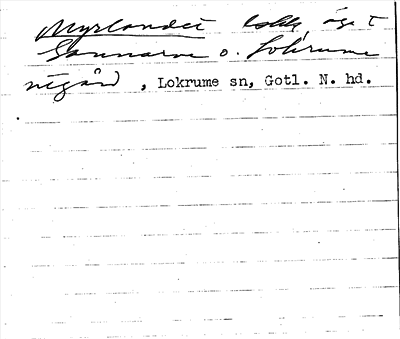 Myrlandet kalls äga t
Gannarve o. Lokrume
utgård, Lokrume sn, Gotl. N. hd.